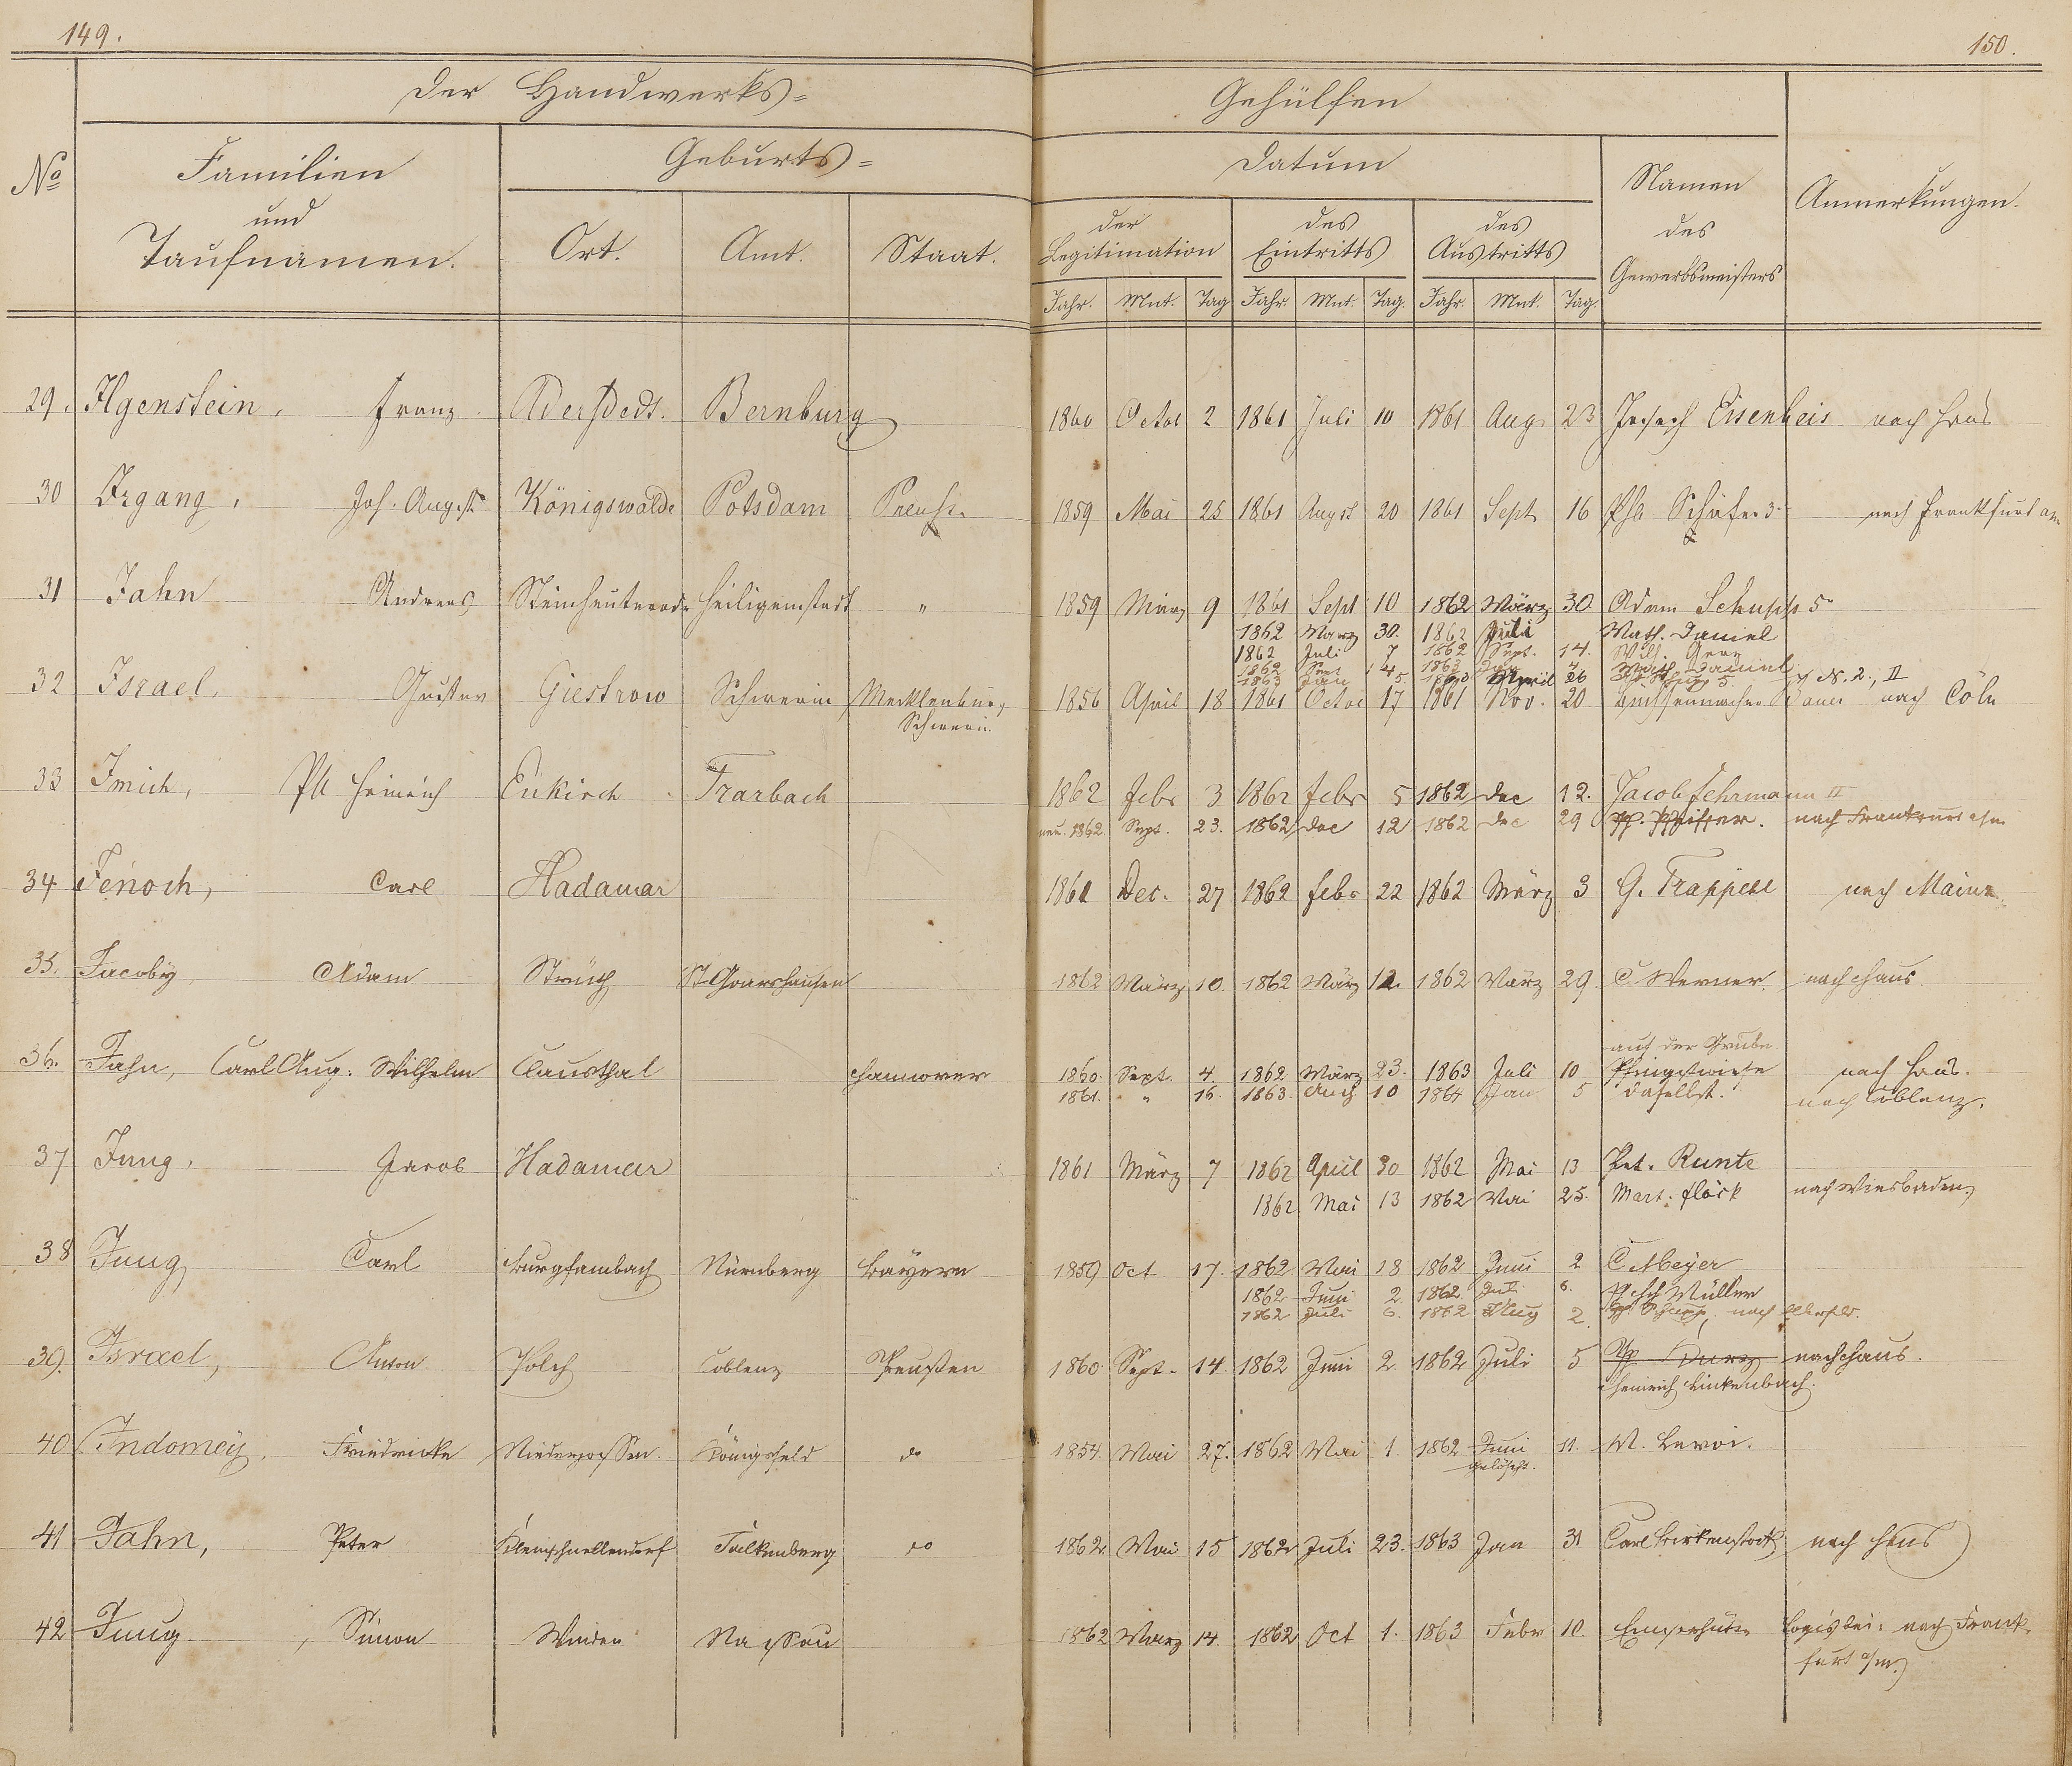 149.
150.
Der Handwerks=
Gehülfen
No
Familien
und
Taufnamen.
Geburts=
Ort. Amt. Staat.
Datum
der Legitimation
des Eintritts
des Austritts
Namen
des
Gewerbsmeisters
Anmerkungen.
Jahr. Mnt. Tag Jahr. Mnt. Tag. Jahr. Mnt. Tag.
29. Ilgenstein, Franz Aderstedt. Bernburg 1860 Octor 2 1861 Juli 10 1861 Aug 23 Joseph Eisenbeis nach Haus
30 Irgang, Joh. August Königswalde Potsdam Preuße 1859 Mai 25 1861 Augst 20 1861 Sept 16 Phil Schäfer 3 nach Frankfurt a/m
31 Jahn Andreas Steinheuterode Heiligenstadt " 1859 März 9 1861 Sept 10 1862 März 30 Adam Schupp 5
1862 März 30. 1862 Juli Math. Daniel
1862 Juli 7 1862 Sept. 14.
1862 Sept 14 1863 Jan 4 Math. Daniel
1863 Jan 5. 1863 April 26 5. N. 2., II
32 Israel, Gustav Giestrow Schwerin Mecklenburg 1856 April 18 1861 Octor 17 1861 Nov. 20 Büchsenmacher Bauer nach Cöln
Schwerin.
33 Imich, Ph Heinrich Enkirch Trarbach 1862 Febr 3 1862 Febr 5 1862 Dec 12. Jacob Fehrmann II
neu. 1862. Sept. 23. 1862 Dec 12 1862 Dec 29 Pfeiffer. nach Frankfurt a/m
34 Jenoch, Carl Hadamar 1861 Dec. 27 1862 Febr 22 1862 März 3 G. Trappehl nach Mainz
35. Jacoby Adam Strüth St Goarshausen 1862 März 10. 1862 März 12. 1862 März 29. C Werner. nach Haus
auf der Grube
36. Jahn, Carl Aug. Wilhelm Clausthal Hannover 1860. Sept. 4. 1862 März 23. 1863 Juli 10 Pfingstwiese nach Haus.
1861. " 16. 1863. Aug 10 1864 Jan 5 daselbst. nach Coblenz.
37 Jung, Jacob Hadamar 1861 März 7 1862 April 30 1862 Mai 13 Pet. Runte
1862 Mai 13 1862 Mai 25. Mart. Flöck nach Wiesbaden
38 Jung Carl Burgfambach Nürnberg Bayern 1859 Oct 17. 1862 Mai 18 1862 Juni 2 C Meyer
1862 Juni 2. 1862 Juli 6. Müller
1862 Juli 6. 1862 Aug 2. Schupp, nach Elberfeld.
39. Israel, Anton Polch Coblenz Preußen 1860. Sept. 14. 1862 Juni 2 1862 Juli 5 nach Haus.
Heinrich Linkenbach.
40 Indomey, Friedricke Königsfeld do 1854. Mai 27. 1862 Mai 1. 1862 Juni 11. W. Levoi.
gelöscht.
41 Jahn, Peter Kleinschnellendorf Falkenberg do 1862. Mai 15 1862 Juli 23. 1863 Jan 31 Carl Birkenstock nach Haus
42 Jung, Simon Winden Nassau 1862 März 14. 1862 Oct 1. 1863 Febr 10. Emserhütte nach Frank=
furt a/m.